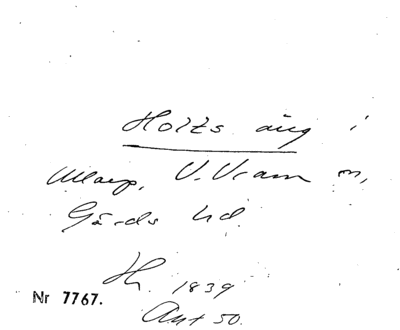 Holts äng i
Ullarp, V. Vram sn,
Gärds hd.
Hr. 1839
Nr 7767.
Akt 50.